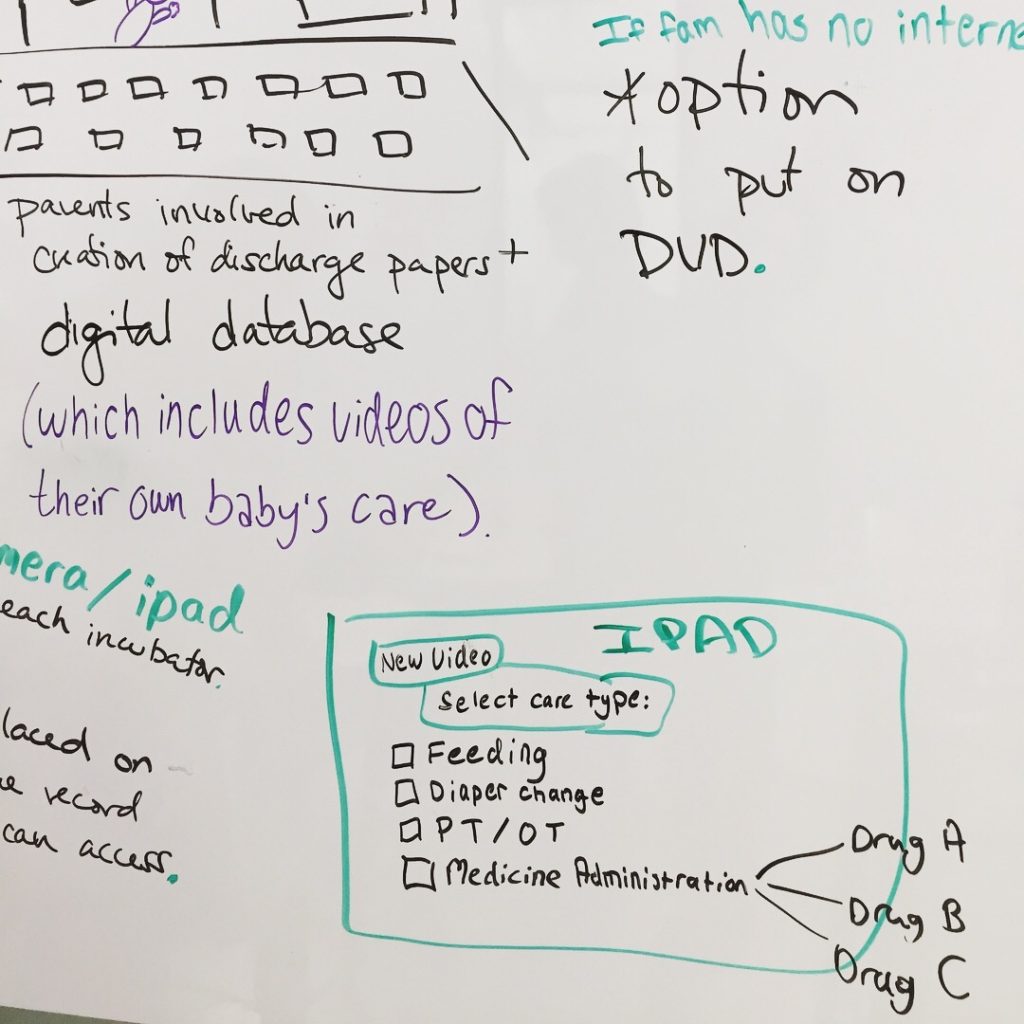 If fam has no interne
*option
to put on
DVD.
parents involved in
creation of discharge papers +
digital database
(which includes videos of
their own baby's care).
mera/ipad
each incubator.
laced on
record
can access.
IPAD
New Video
Select care type:
Feeding
Diaper change
PT/OT
Medicine Administration
Drug A
Drug B
Drug C